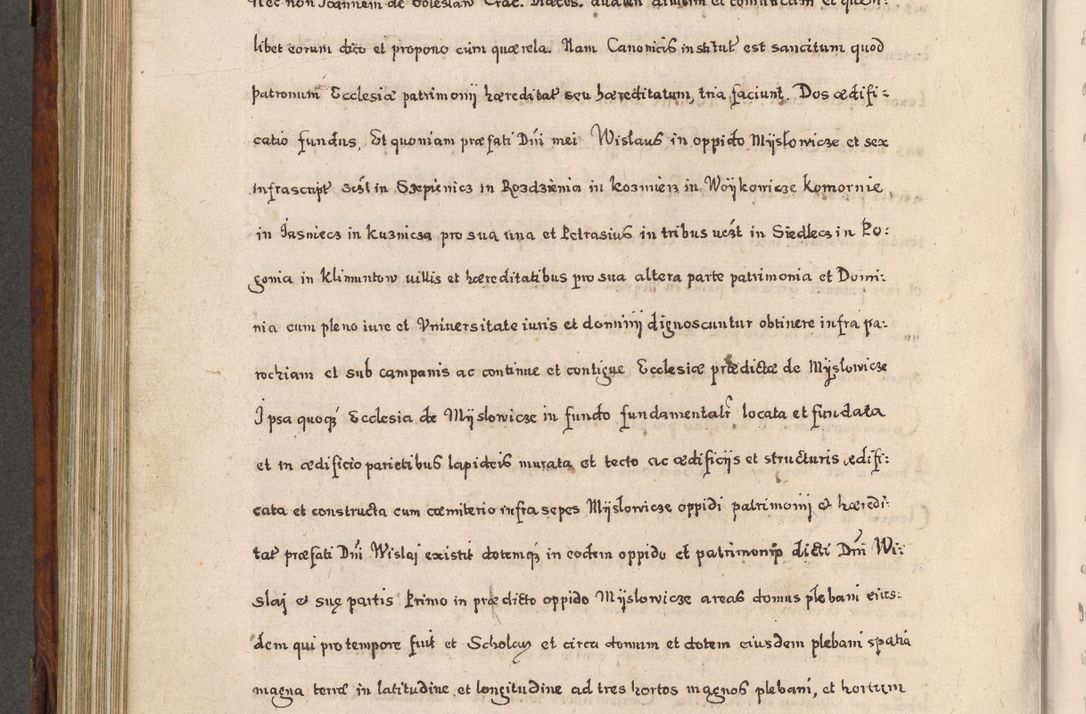 nec non Joannem de Boleslaw Crac. Diaeces.
libet eorum dico et propono cum quaerela. Nam Canonicis institut̄ est sancitum quod
patronum Ecclesiae patrimonij haereditat̄ seu haereditatum, tria faciunt. Dos aedifi:
catio fundus, Et quoniam praefati Dn̄i mei Wislaus in oppido Mÿslowicze et sex
infrascript̄ sc̄t in Szepienicz in Rozdzienia in kozmierz in Woÿkowicze Komornie
in Jasniecz in kuznicza pro sua una et Petrasius in tribus uc̄t in Siedlecz in Po:
gonia in Klimuntow uillis et haereditatibus pro sua altera parte patrimonia et Domi:
nia cum pleno iure et Vniuersitate iuris et dominij dignoscuntur obtinere infra pa:
rochiam et sub campanis ac continue et contigue Ecclesiae praedictae de Mÿslowicze
Ipsa quoq́ Ecclesia de Mÿslowicze in fundo fundamentalr̄ locata et fundata
et in aedificio parietibus lapideis murata et tecto ac aedificijs et structuris aedifi:
cata et constructa cum caemiterio infra sepes Mÿslowicze oppidi patrimonij & haeredi:
tat̄ praefati Dn̄i Wislaj existit dotemq́ in eodem oppido et patrimonio dicti Dn̄i Wi:
slaj & suę partis Primo in prae dicto oppido Mÿslowicze areas domus plebani eius:
dem qui pro tempore fuit et Scholam et circa domum et dotem eiusdem plebani spatia
magna terrae in latitudine et longitudine ad tres hortos magnos plebani, et hortum